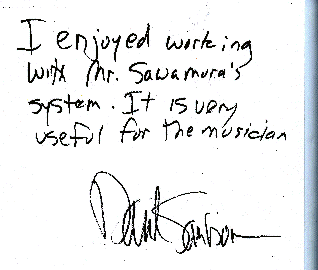 I enjoyed working
with Mr. Sawamura's
system. It is very
useful for the musician